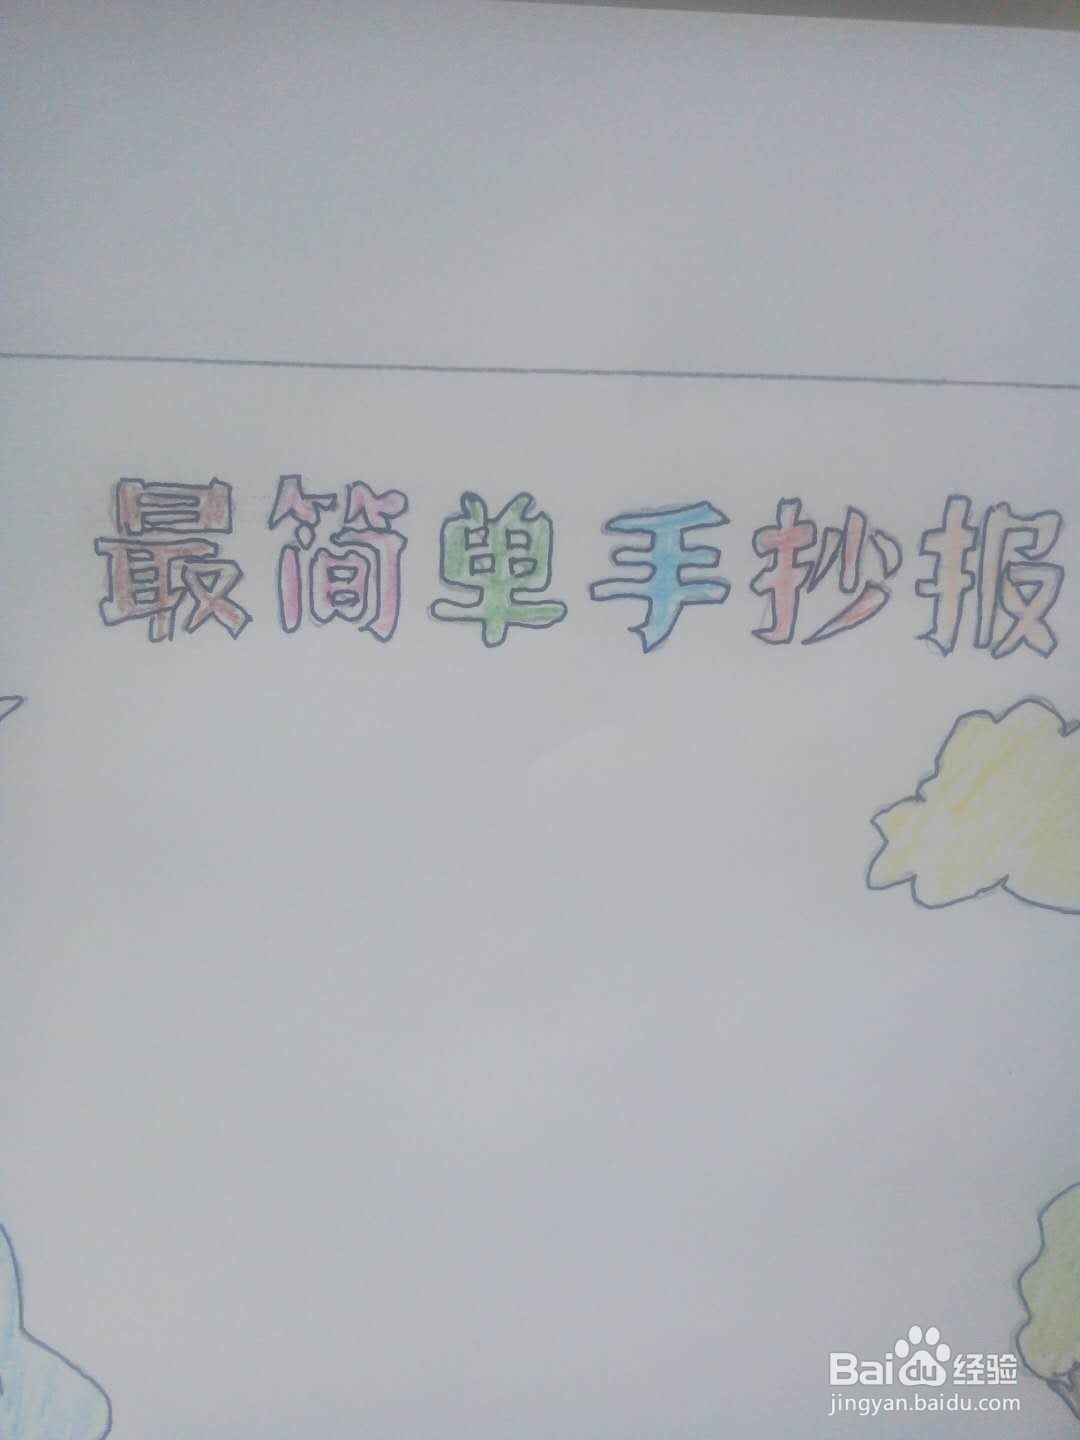 最简单手抄报
Baidu经验
jingyan.baidu.com